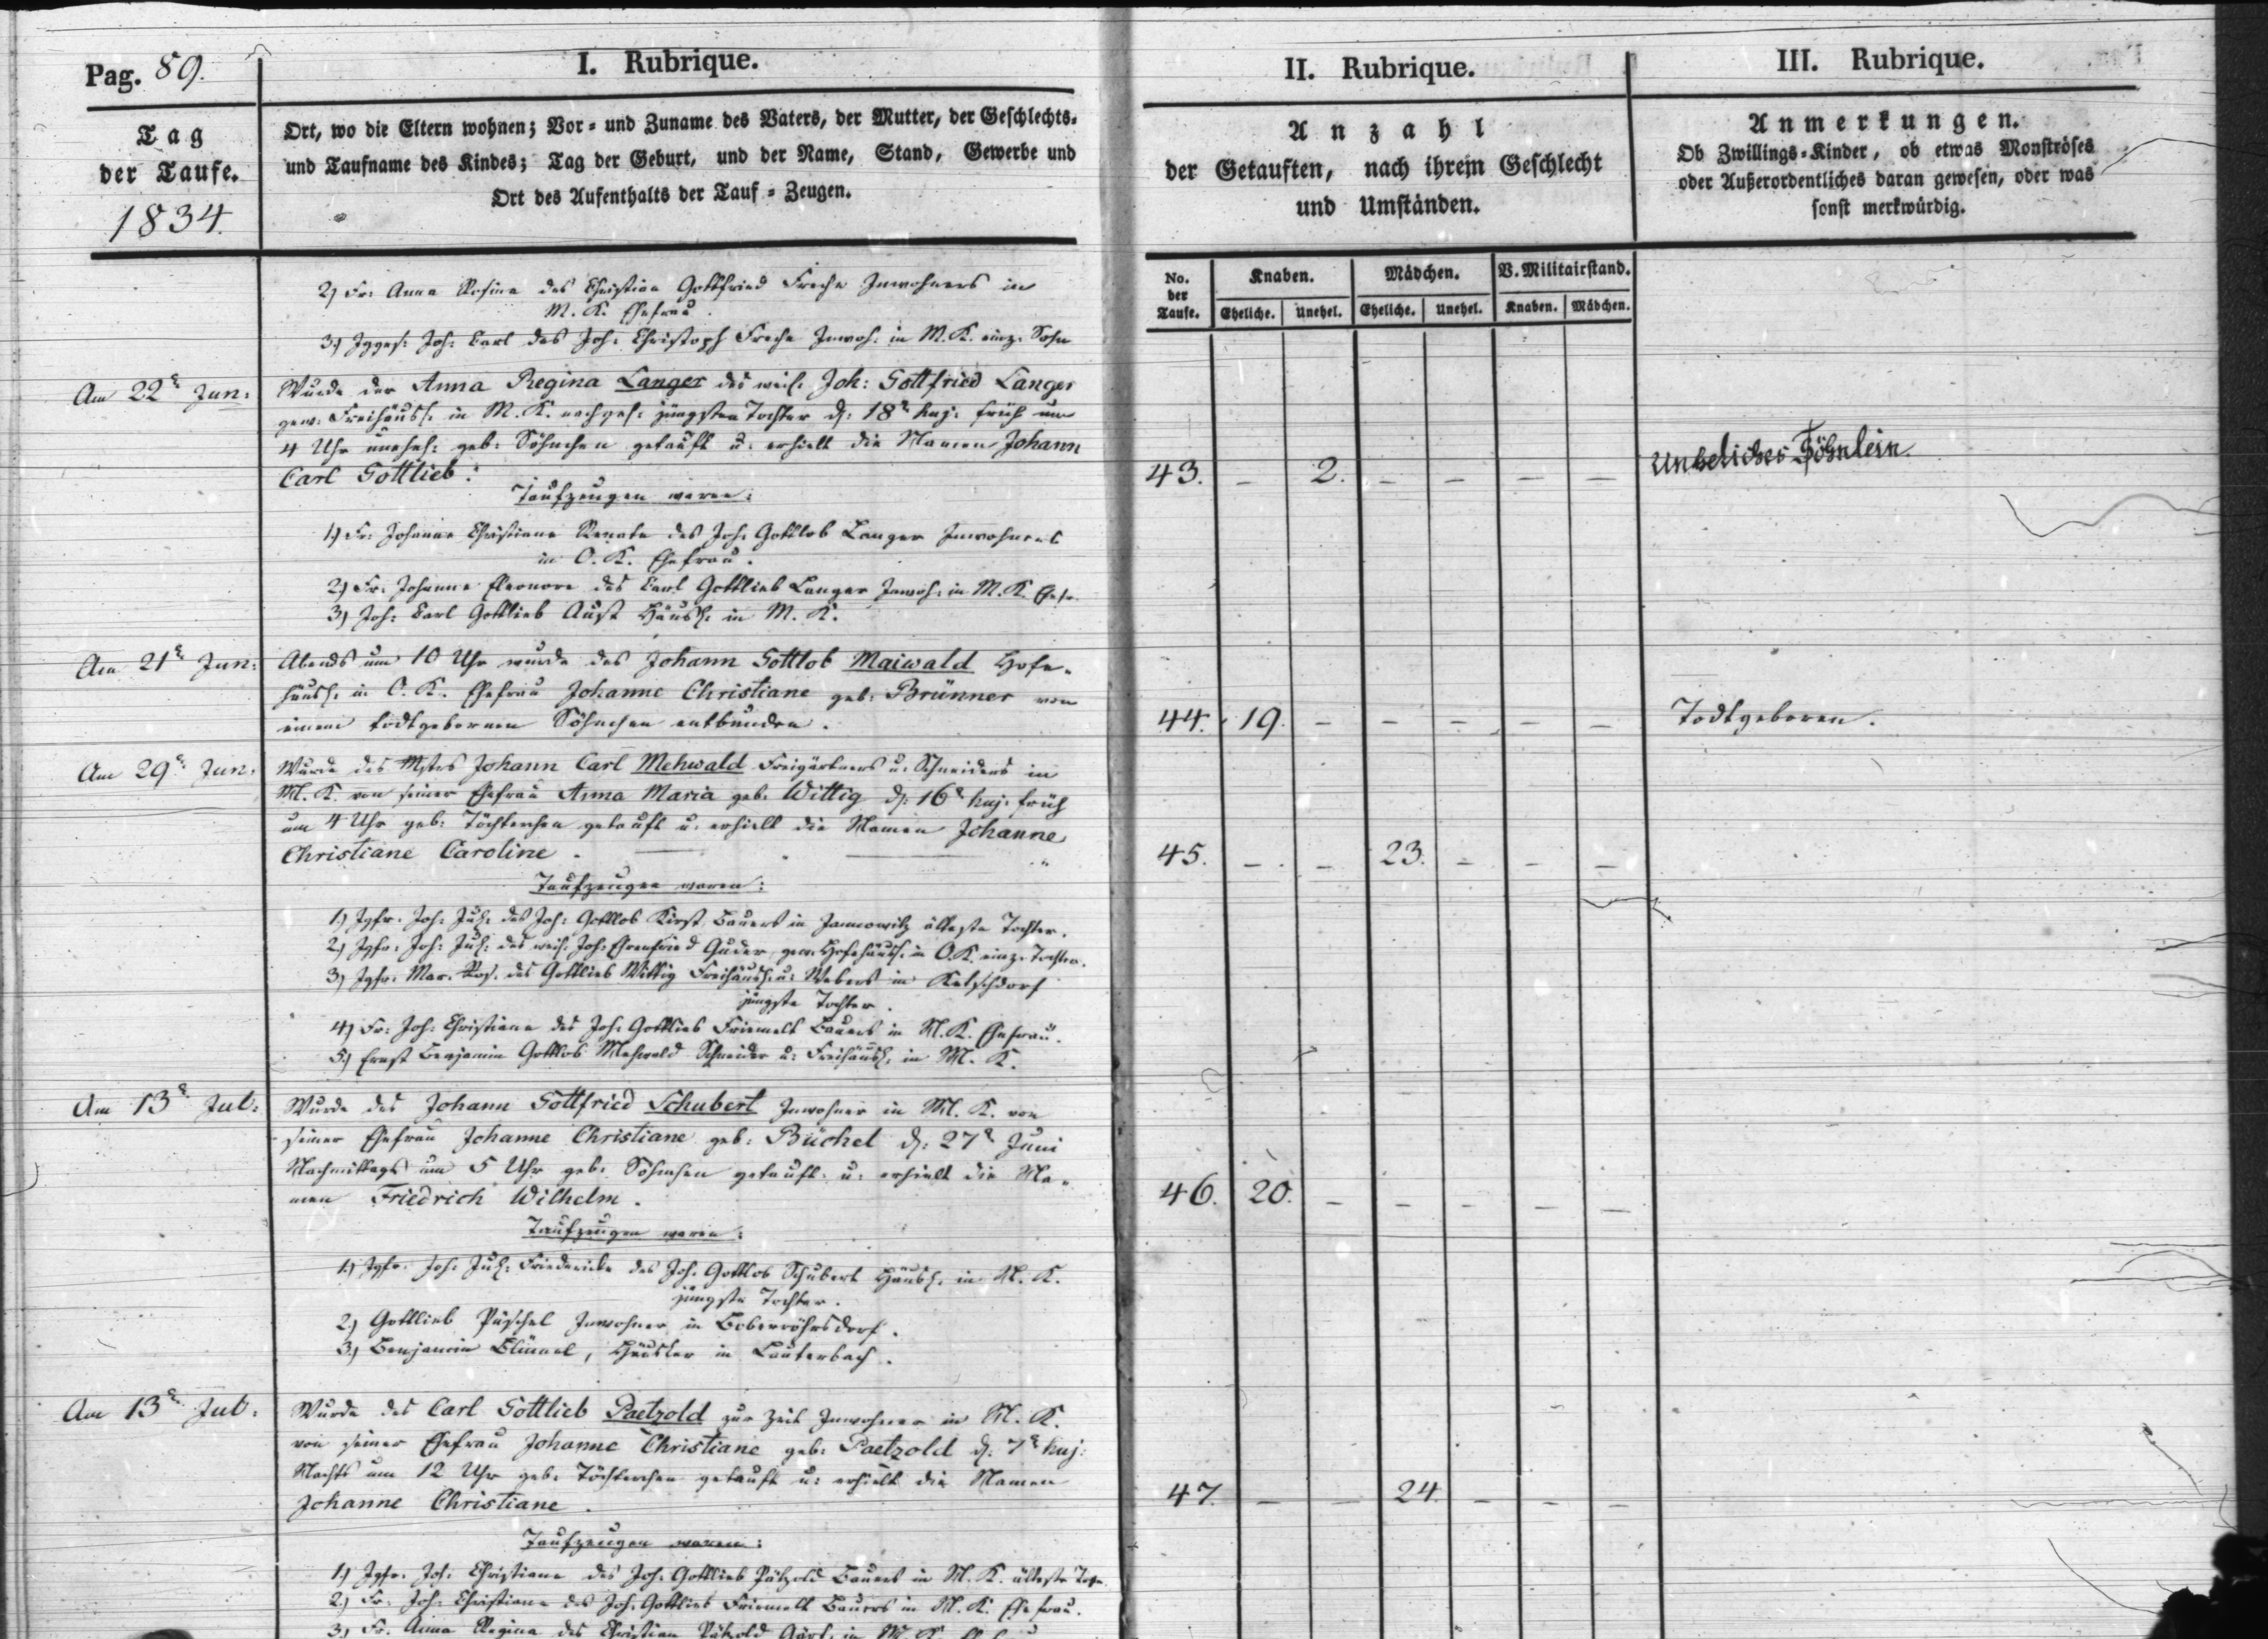 Pag. 89.
I. Rubrique.
Tag
der Taufe.
1834.
Ort, wo die Eltern wohnen; Vor- und Zuname des Vaters, der Mutter, der Geschlechts-
und Taufname des Kindes; Tag der Geburt, und der Name, Stand, Gewerbe und
Ort des Aufenthalts der Tauf-Zeugen.
II. Rubrique.
Anzahl
der Getauften, nach ihrem Geschlecht
und Umständen.
III. Rubrique.
Anmerkungen.
Ob Zwillings-Kinder, ob etwas Monströses
oder Außerordentliches daran gewesen, oder was
sonst merkwürdig.
No. der Taufe.
Knaben. Mädchen. V. Militairstand.
Eheliche. Unehel. Eheliche. Unehel. Knaben. Mädchen.
2) Fr: Anna Rosina des Christian Gottfried Freche Inwohners in
M. K. Ehefrau.
3) Jgges: Joh: Carl des Joh: Christoph Freche Inwoh: in M. K. einz. Sohn
Am 22t Jun:
Wurde der Anna Regina Langer des weil. Joh: Gottfried Langer
gew: Freihäusl: in M. K. nachgel: jüngsten Tochter d: 18t huj: früh um
4 Uhr unehel: geb: Söhnchen getauft u: erhielt die Namen Johann
Carl Gottlieb:
43. – 2. – – – –
Unheliches Söhnlein
Taufzeugen waren:
1) Fr: Johanne Christiane Renate des Joh: Gottlob Langer Inwohners
in O. K. Ehefrau.
2) Fr: Johanne Eleonore des Carl Gottlieb Langer Inwoh: in M. K. Ehefr.
3) Joh: Carl Gottlieb Aust Häusl: in M. K.
Am 21t Jun:
Abends um 10 Uhr wurde des Johann Gottlob Maiwald Hofe-
häusl: in O. K. Ehefrau Johanne Christiane geb: Brünner von
einem todtgebornen Söhnchen entbunden.
44. 19. – – – – –
Todtgeboren.
Am 29t Jun:
Wurde des Mstrs Johann Carl Mehwald Freigärtners u: Schneiders in
M. K. von seiner Ehefrau Anna Maria geb: Wittig d: 16t huj: früh
um 4 Uhr geb: Töchterchen getauft u: erhielt die Namen Johanne
Christiane Caroline.
45. – – 23. – – –
Taufzeugen waren:
1) Jgfr. Joh: Jul: des Joh: Gottlob Kirst Bauers in Jannowitz älteste Tochter.
2) Jgfr: Joh: Jul: des weil. Joh: Ehrenfried Guder, gew: Hofehäusl: in O. K. einz. Tochter.
3) Jgfr: Mar. Ros. des Gottlieb Wittig Freihäusl: u: Webers in Ketschdorf
jüngste Tochter.
4) Fr: Joh: Christiane des Joh: Gottlieb Friemelt Bauers in M. K. Ehefrau.
5) Ernst Benjamin Gottlob Mehwald Schneider u: Freihäusl: in M. K.
Am 13t Jul:
Wurde des Johann Gottfried Schubert Inwohner in M. K. von
seiner Ehefrau Johanne Christiane geb: Büchel d: 27t Juni
Nachmittags um 5 Uhr geb: Söhnchen getauft u: erhielt die Na-
men Friedrich Wilhelm.
46. 20. – – – – –
Taufzeugen waren:
1) Jgfr. Joh: Jul: Friedericke des Joh: Gottlob Schubert Häusl: in M. K.
jüngste Tochter.
2) Gottlieb Püschel Inwohner in Boberröhrsdorf.
3) Benjamin Blümel, Häusler in Lauterbach.
Am 13t Jul:
Wurde des Carl Gottlieb Paetzold zur Zeit Inwohner in M. K.
von seiner Ehefrau Johanne Christiane geb: Paetzold d: 7t huj:
Nachts um 12 Uhr geb: Töchterchen getauft u: erhielt die Namen
Johanne Christiane.
47. – – 24. – – –
Taufzeugen waren:
1) Jgfr. Joh: Christiane des Joh: Gottlieb Pätzold Bauers in M. K. älteste Tocht.
2) Fr: Joh: Christiane des Joh: Gottlieb Friemelt Bauers in M. K. Ehefrau.
3) Fr: Anna Regina des Christian Pätzold in M. K.